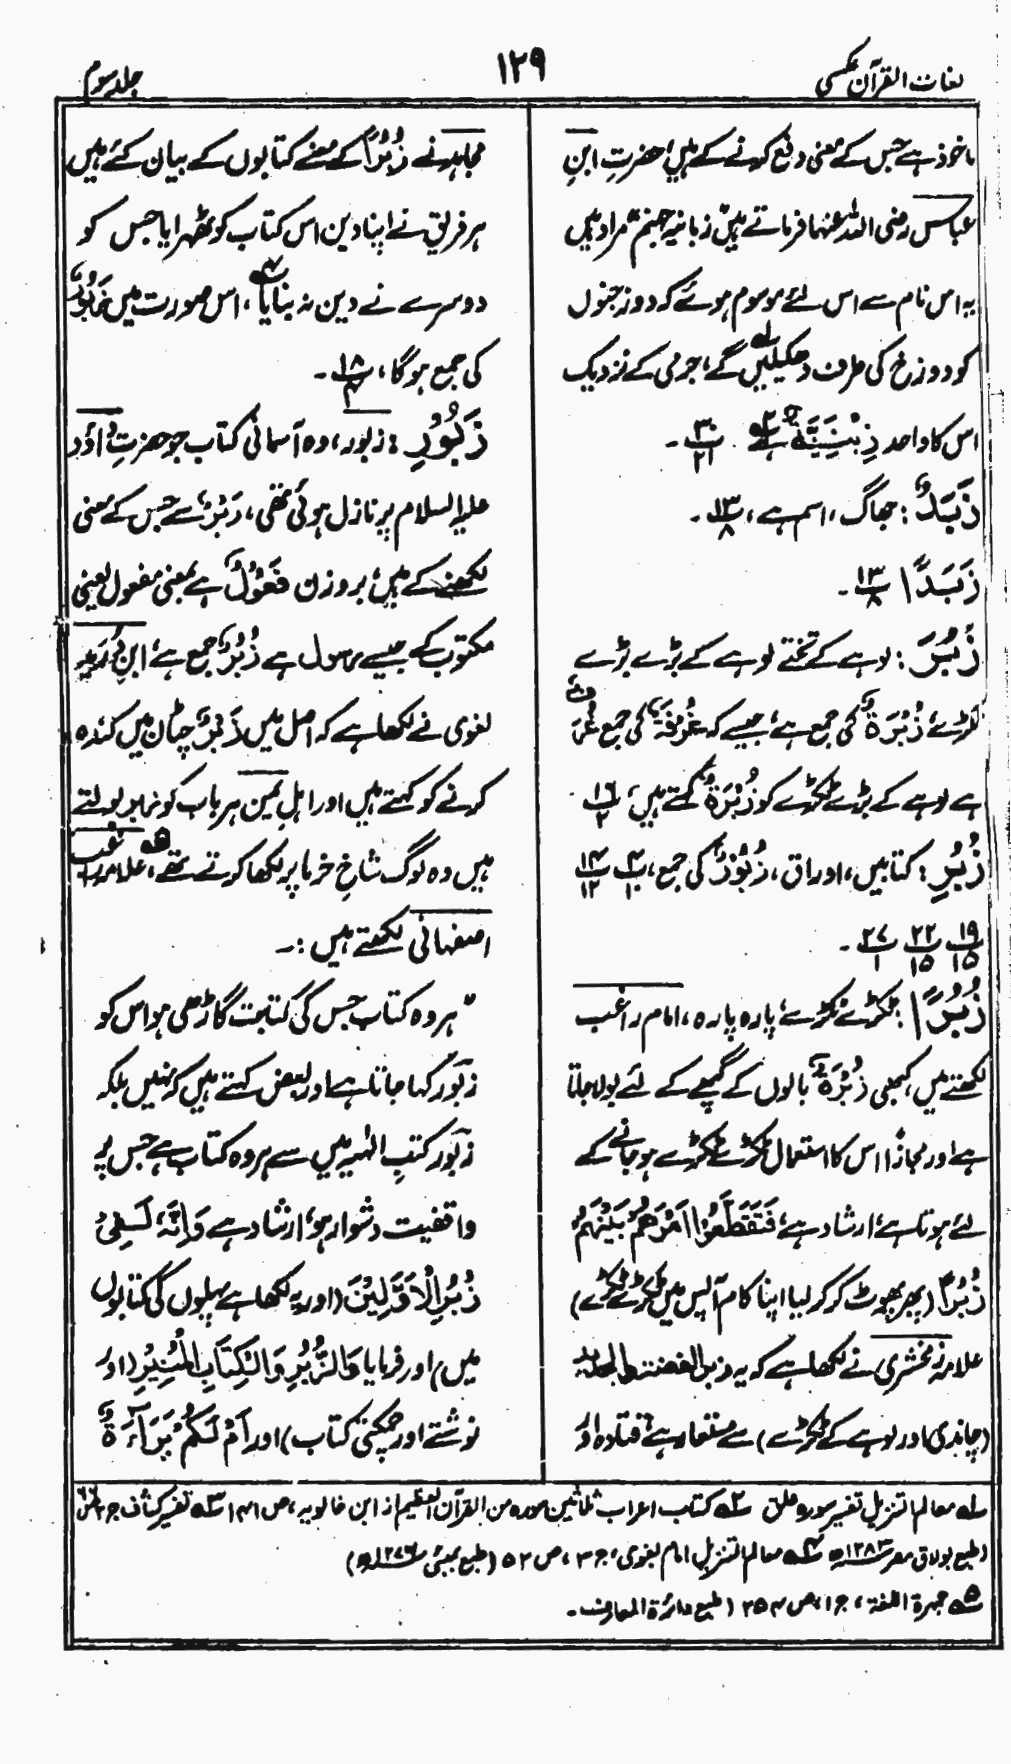 لغات القرآن عکسی
۱۲۹
جلد سوم
ماخوذ ہے جس کے معنی دفع کرنے کے ہیں، حضرتِ ابنِ
عباس رضی اللہ عنہما فرماتے ہیں زبانیہ جہنم مراد ہیں
یہ اس نام سے اس لئے موسوم ہوئے کہ دوزخیوں
کو دوزخ کی طرف دھکیلیں گے، جرمی کے نزدیک
اس کا واحد زِبْنِیَّةٌ ہے ۳۰/۲۱ ۔
زَبَدٌ : جھاگ، اسم ہے، ۱۳/۸ ۔
زَبَدًا ۱۳/۸ ۔
زُبَرَ : لوہے کے تختے لوہے کے بڑے بڑے
ٹکڑے زُبْرَةٌ کی جمع ہے، جیسے کہ غُرْفَةٌ کی جمع غُرَفٌ
ہے لوہے کے بڑے ٹکڑے کو زُبْرَةٌ کہتے ہیں، ۱۶/۲
زُبُرِ : کتابیں، اوراق، زَبُوْرٌ کی جمع، ۴/۱۰ ۱۴/۱۲
۱۹/۱۵ ۲۲/۱۵ ۲۷/۱ ۔
زُبُرًا : ٹکڑے ٹکڑے، پارہ پارہ، امام راغب
لکھتے ہیں، کبھی زُبْرَةٌ بالوں کے گچھے کے لئے بولا جاتا
ہے اور مجازًا اس کا استعمال ٹکڑے ٹکڑے ہو جانے کے
لئے ہوتا ہے، ارشاد ہے، فَتَقَطَّعُوْا اَمْرَهُمْ بَيْنَهُمْ
زُبُرًا (پھر پھوٹ کر کر لیا اپنا کام آپس میں ٹکڑے ٹکڑے)
علامہ زمخشری نے لکھا ہے کہ یہ زبر الفضة والحدید
(چاندی اور لوہے کے ٹکڑے) سے مستعار ہے، قتادہ اور
مجاہد نے زُبُرًا کے معنے کتابوں کے بیان کئے ہیں
ہر فریق نے اپنا دین اس کتاب کو ٹھہرایا جس کو
دوسرے نے دین نہ بنایا، اس صورت میں زَبُوْرٌ
کی جمع ہوگا، ۱۸/۴ ۔
زَبُوْرِ : زبور، وہ آسمانی کتاب جو حضرتِ داؤد
علیہ السلام پر نازل ہوئی تھی، زَبْرٌ سے جس کے معنی
لکھنے کے ہیں، بروزن فَعُوْلٌ ہے بمعنی مفعول یعنی
مکتوب کے جیسے رسول ہے زُبُرٌ جمع ہے، ابنِ دُرَید
لغوی نے لکھا ہے کہ اصل میں زَبْرٌ چٹان میں کندہ
کرنے کو کہتے ہیں اور اہلِ یمن ہر باب کو زبور بولتے
ہیں وہ لوگ شاخِ خرما پر لکھا کرتے تھے، علامہ راغب
اصفہانی لکھتے ہیں :۔
" ہر وہ کتاب جس کی کتابت گاڑھی ہو اس کو
زبور کہا جاتا ہے اور بعض کہتے ہیں کہ نہیں بلکہ
زبور کتبِ الٰہیہ میں سے ہر وہ کتاب ہے جس پر
واقفیت دشوار ہو، ارشاد ہے وَاِنَّهٗ لَفِیْ
زُبُرِ الْاَوَّلِیْنَ (اور یہ لکھا ہے پہلوں کی کتابوں
میں) اور فرمایا وَالزُّبُرِ وَالْکِتَابِ الْمُنِیْرِ (اور
نوشتے اور چمکتی کتاب) اور اَمْ لَکُمْ بَرَآءَةٌ
۱ہ معالم التنزیل تفسیر سورہ علق ۲ہ کتاب اعراب ثلاثین سورہ من القرآن العظیم از ابن خالویہ، ص ۱۴۱ ۳ہ تفسیر کشاف ج ۲
(طبع بولاق مصر ۱۲۸۳ھ) ۴ہ معالم التنزیل امام بغوی، ج ۳، ص ۵۲ (طبع بمبئی ۱۲۷۶ھ)
۵ہ جمہرة اللغة، ج ۱، ص ۲۵۴ (طبع دائرة المعارف ۔